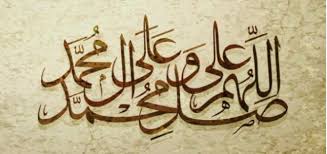 اللّهُمَّ صَلِّ عَلى مُحَمَّد وَ عَلى آل مُحَمَّد